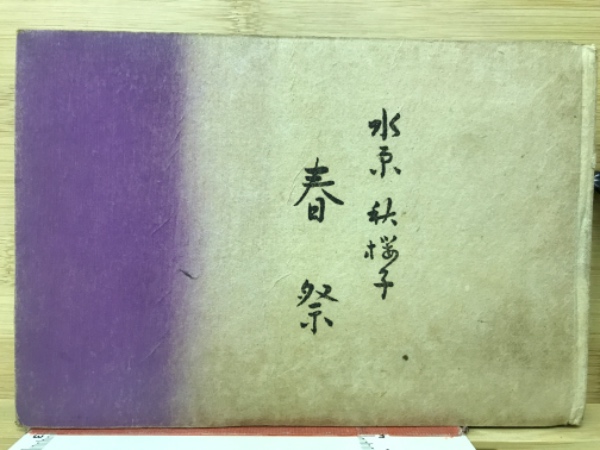 水原 秋桜子
春祭